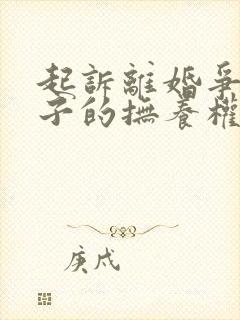 起訴離婚爭
子的撫養權
庚戌